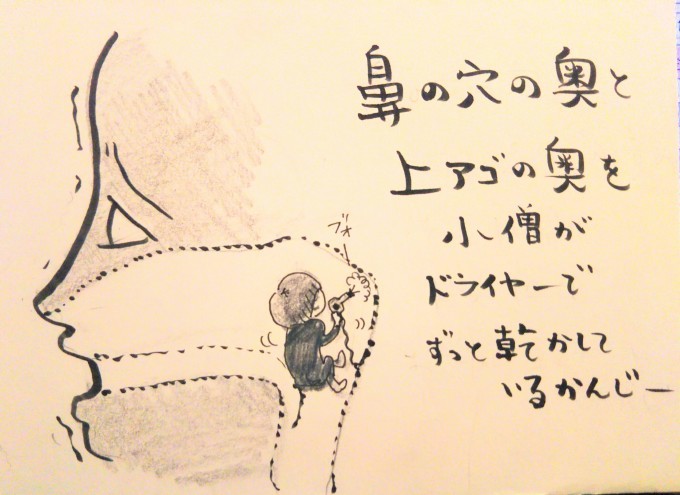 鼻の穴の奥と
上アゴの奥を
小僧が
ドライヤーで
ずっと乾かして
いるかんじー
ブォー